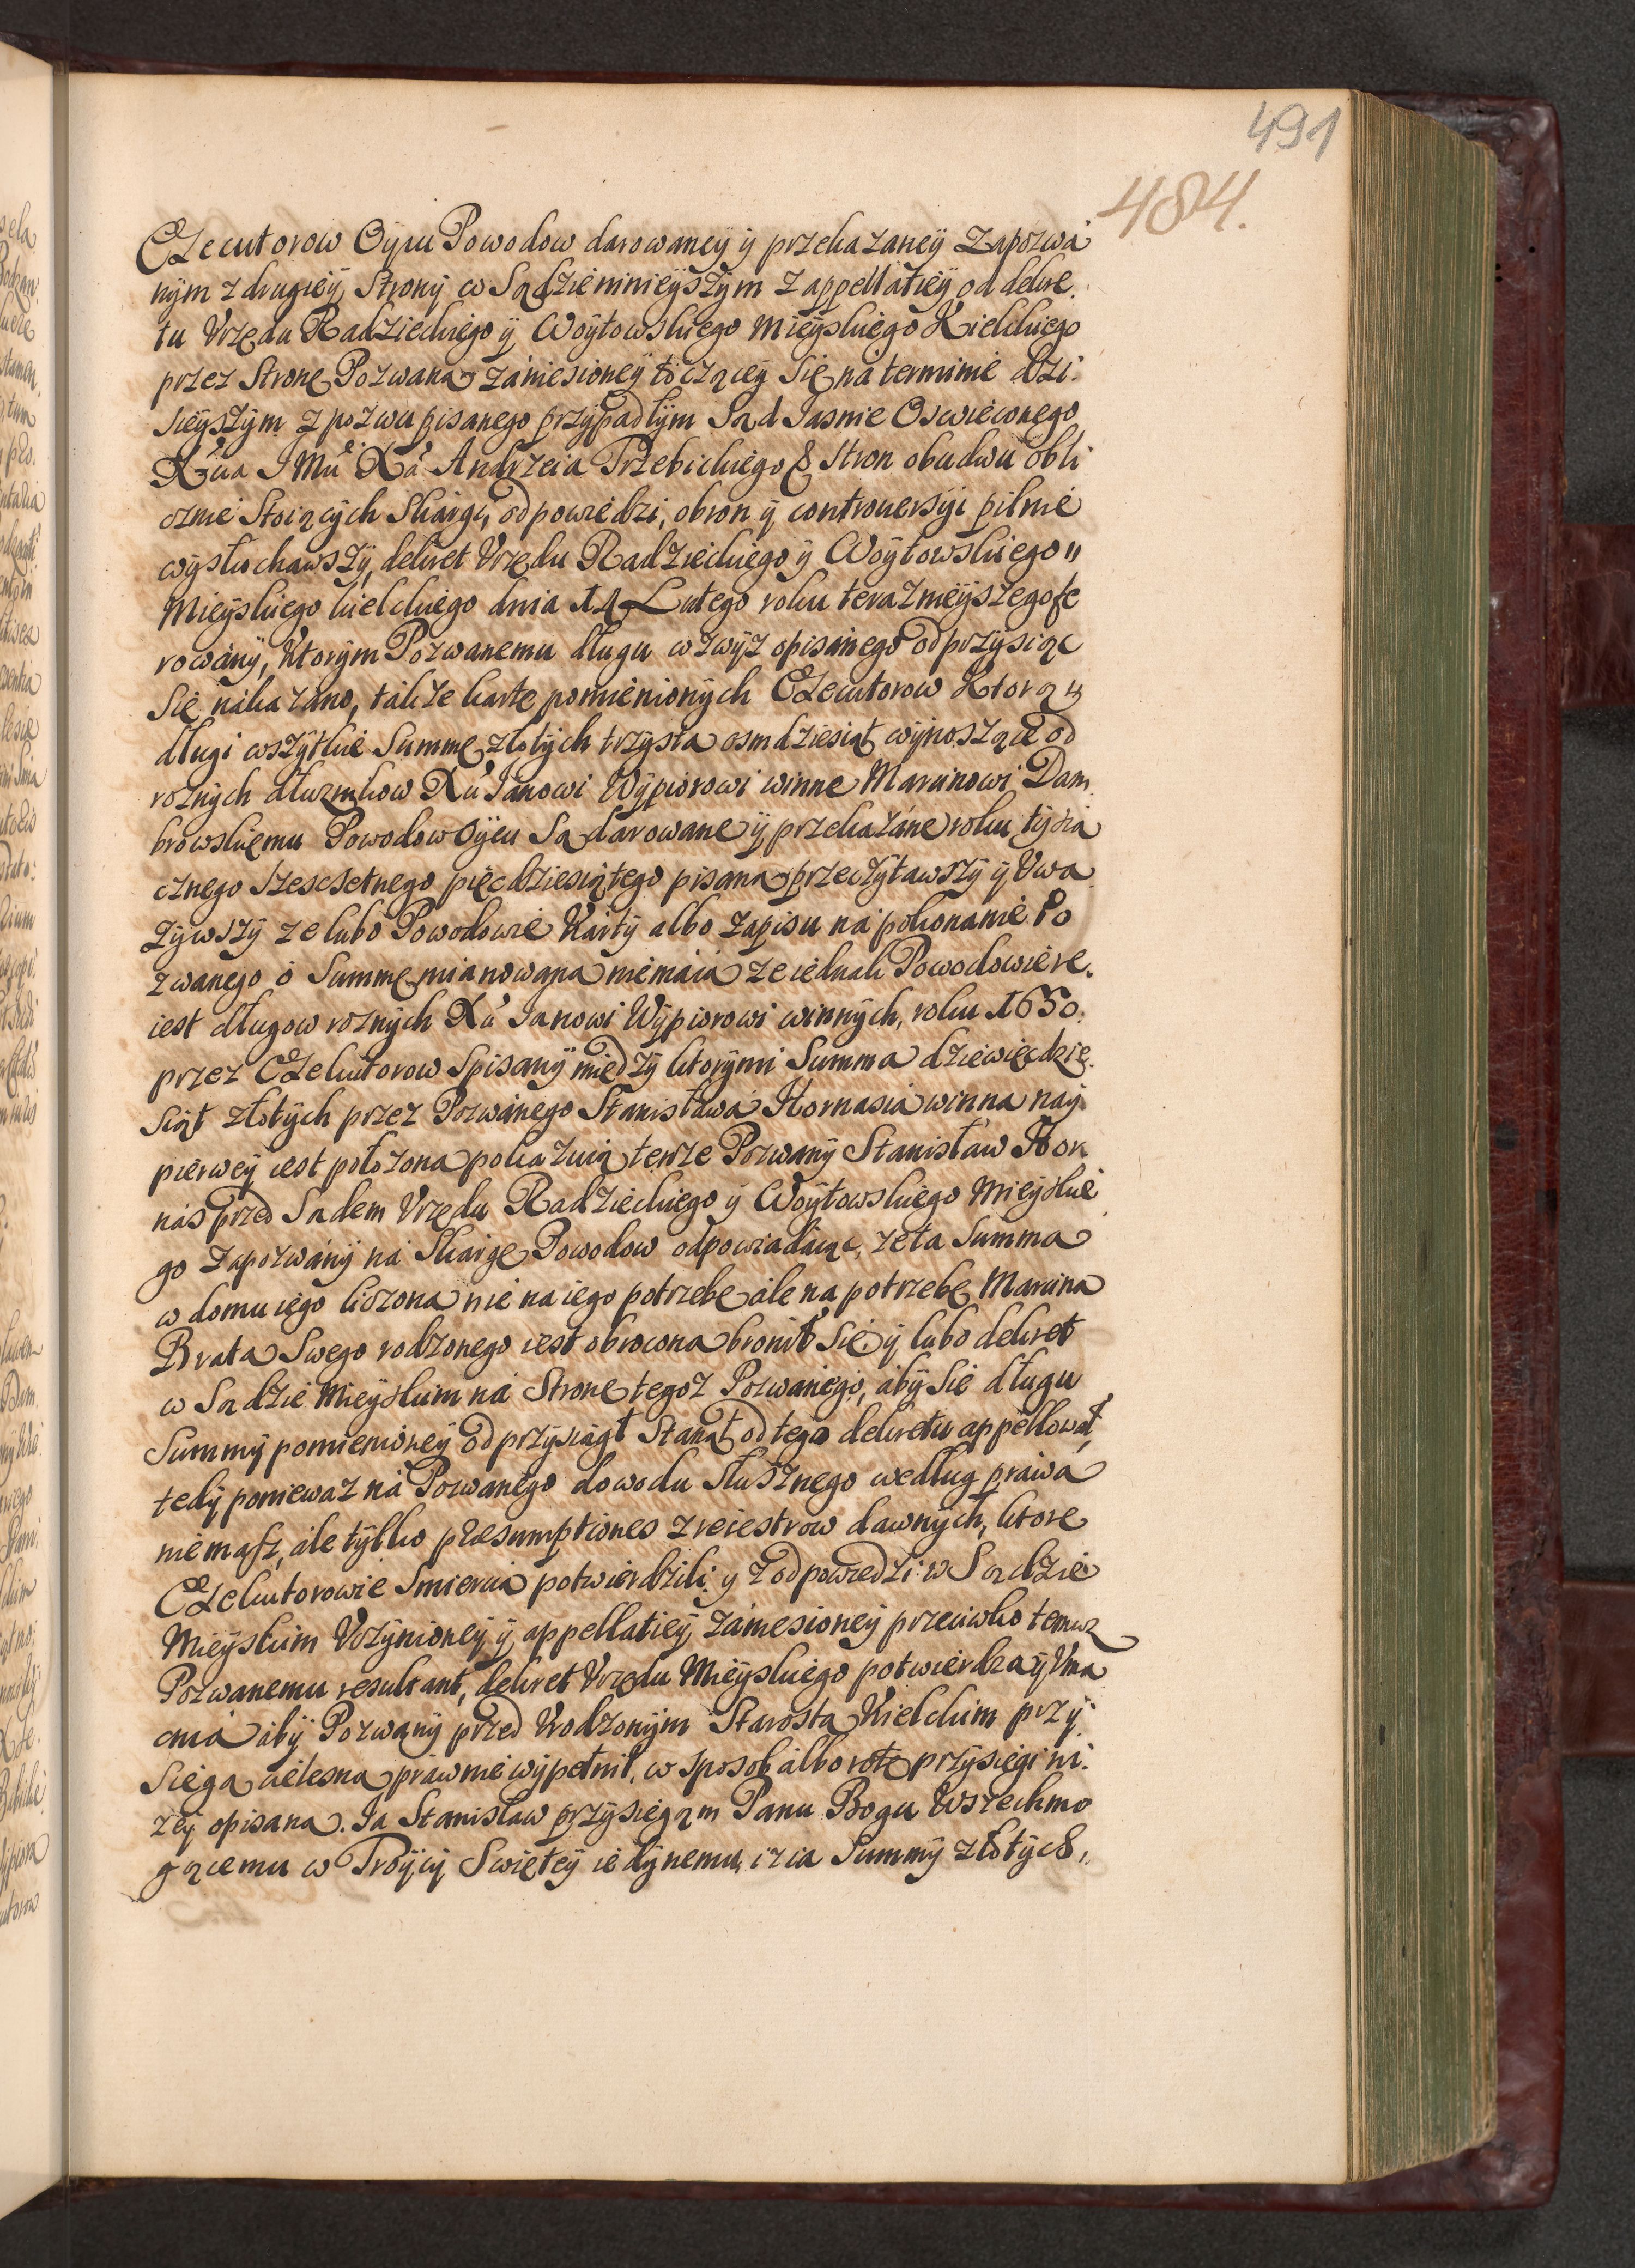 491
484.
Executorow Oycu Powodow darowaney ÿ przekazaney Zapozwa
nÿm z drugieÿ Stronÿ w Sądzie ninieÿszÿm z appellatieÿ od dekre
tu Vrzędu Radzieckiego ÿ Woÿtowskiego Mieÿskiego Kieleckiego
przez Stronę Pozwaną zaniesioneÿ toczącey Się na terminie dzi
sieÿszÿm z pozwu pisanego przÿpadłÿm Sąd Jasnie Oswieconego
Xcia J Mci Xa Andrzeia Trzebickiego & Stron obudwu obli
cznie Stoiącÿch Skargi, odpowiedzi, obron ÿ controuersÿi pilnie
wÿsłuchawszÿ, dekret Vrzędu Radzieckiego ÿ Woÿtowskiego
Mieÿskiego kieleckiego dnia 14 Lutego roku teraznieÿszego fe
rowanÿ, Ktorÿm Pozwanemu długu wzwÿz opisanego odprzÿsiąc
Się nakazano, takze kartę pomienionÿch Exccutorow Ktorą
długi wszÿtkie Summę złotÿch trzÿsta osmdziesiąt wÿnoszące od
roznÿch dłuznikow Xu Janowi Wÿpiorowi winne Marcinowi Dam
browskiemu Powodow Oÿcu Są darowane ÿ przekazane roku tÿsia
cznego Szescsetnego pięcdziesiątego pisaną przeczÿtawszÿ ÿ Vwa
zÿwszÿ ze lubo Powodowie Kartÿ albo zapisu na pokonanie Po
zwanego o Summę mianowaną niemaią ze iednak Powodowie re
iest długow roznÿch Xu Janowi Wÿpiorowi winnÿch, roku 1650.
przez Exekutorow Spisanÿ międzÿ ktorÿmi Summa dziewięcdzie
siąt złotÿch przez Pozwanego Stanisława Hornasia winna naÿ
pierweÿ iest połozona pokazuią tenze Pozwanÿ Stanisław Hor
nas przed Sądem Vrzędu Radzieckiego ÿ Woÿtowskiego Mieÿskie
go Zapozwanÿ na Skargę Powodow odpowiadaiąc, ze ta Summa
w domu iego liczona nie na iego potrzebę ale na potrzebę Marcina
Brata Swego rodzonego iest obrocona bronił Się ÿ lubo dekret
w Sądzie Mieÿskim na Stronę tegoz Pozwanego, abÿ Się długu
Summÿ pomienioneÿ odprzÿsiągł Stanął od tego dekretu appellował,
tedÿ poniewaz na Pozwanego dowodu Słusznego według prawa
niemasz, ale tÿlko præsumptiones z reiestrow dawnÿch, ktore
Exekutorowie Smiercią potwierdzili ÿ z odpowiedzi w Sądzie
Mieÿskim Vczÿnioneÿ ÿ appellatieÿ zaniesioneÿ przeciwko temuz
Pozwanemu resultant, dekret Vrzędu Mieÿskiego potwierdza ÿ Vma
cnia abÿ Pozwanÿ przed Vrodzonÿm Starostą Kieleckim przÿ
sięgą cielesną prawnie wÿpełnił, w sposob albo rotę przÿsięgi ni
zeÿ opisaną. Ja Stanisław przÿsięgam Panu Bogu Wszechmo
gącemu w Troÿcÿ Swięteÿ iedÿnemu, iz ia Summÿ złotÿch,